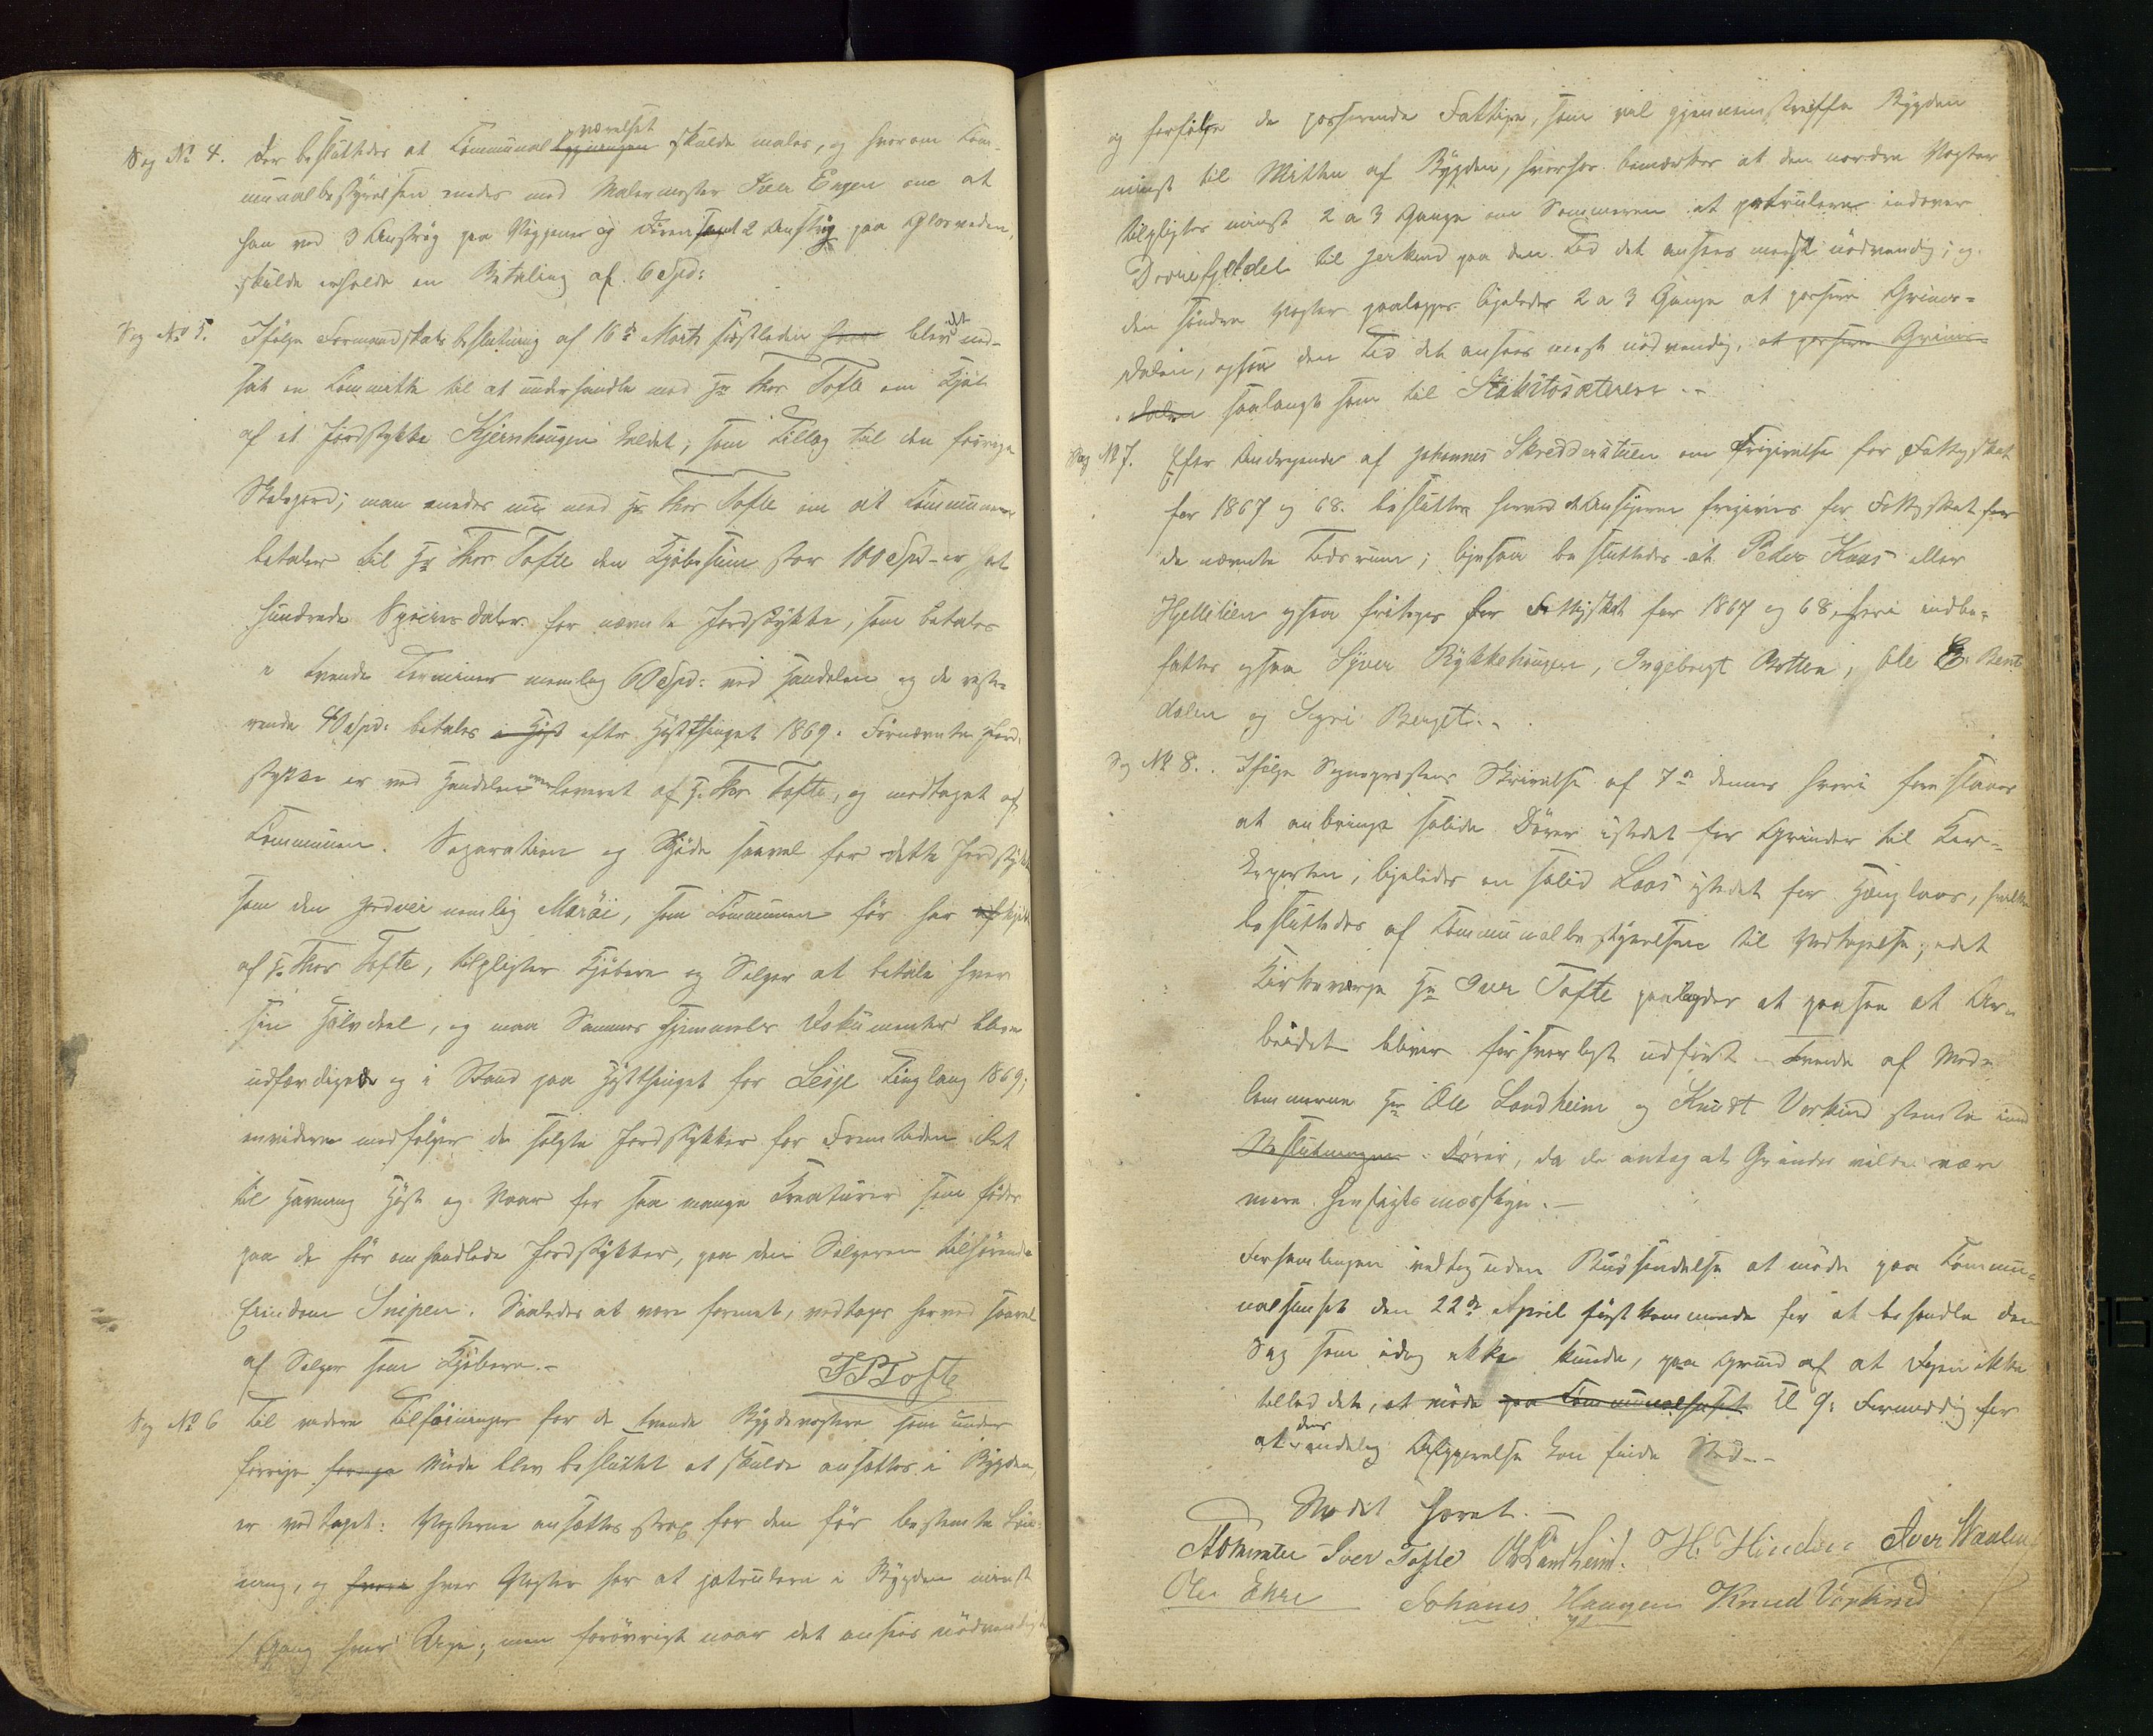 Sag No 4. Der besluttedes at Communal bygningen værelset skulde males, og hvorom Com-
munalbestyrelsen enedes med Malermester Iver Engen om at
han ved 3 Anstrøg paa Væggene og Døren samt 2 Anstrøg paa Glasveden,
skulde erholde en Betaling af 6 Spd:
Sag No 5. Ifølge Formandskabsbeslutning af 16de Marts sidstleden hvor blev det ned-
sat en Committe til at underhandle med Hr Thor Tofte om Kjøb
af et Jordstykke Kjernhougen kaldet, som Tillæg til den forrige
Skolejord; man enedes nu med Hr Thor Tofte om at Communen
betaler til Hr Thor Tofte den Kjøbesum stor 100 Spd - er, et
hundrede Speciesdaler for nævnte Jordstykke, som betales
i tvende Terminer nemlig 60 Spd: ved Handelen og de reste-
rende 40 Spd: betales i Høst efter Høstthinget 1869. Fornævnte Jord-
stykke er ved Handelen overleveret af H. Thor Tofte, og modtaget af
Communen. Separation og Skjøde saavel for dette Jordstykke
som den Jordvei nemlig Marøi, som Communen før har afkjøbt
af H. Thor Tofte, tilpligter Kjøbere og Sælger at betale hver
sin Halvdeel, og maa Sammes Hjemmels Dokumenter blive
udfærdigede og i Stand paa Høstthinget for Lesje Tinglaug 1869;
envidere medfølger de solgte Jordstykker for Fremtiden Ret
til Havning Høst og Vaar for saa mange Kreaturer som fødes
paa de før omhandlede Jordstykker, paa den Sælgeren tilhørende
Eiendom Snipen. Saaledes at være formet, vedtages herved saavel
af Sælger som Kjøbere.-
T P Tofte
Sag No 6 Til videre Tilføininger for de tvende Bygdevogtere som under
forrige forrige Møde blev besluttet at skulde ansættes i Bygden,
er vedtaget: Vogterne ansættes strax for den før bestemte Løn-
ning, og hver hver Vogter har at patrulere i Bygden mindst
1 Gang hver Uge; men forøvrigt naar det ansees nødvendigt
og forfølge de passerende Fattige, som vil gjennemstreiffe Bygden
mindst til Midten af Bygden, hvorhos bemærkes at den nordre Vogter
tilpligtes mindst 2 a 3 Gange om Sommeren at patrulere indover
Dovrefjeldet til Jerkind paa den Tid det ansees meest nødvendig; og
den søndre Vogter paalægges ligeledes 2 a 3 Gange at passere Grims-
dalen, ogsaa den Tid det ansees mest nødvendig, at passere Grims-
dalen saalangt som til Stakstosæteren.-
Sag No 7. Efter Andragende af Johannes Skredderstuen om Frigivelse for Fattigskat
for 1867 og 68. besluttes herved at Ansøgeren frigives for Fattigskat for
de nævnte Tidsrum; ligesaa besluttedes at Peder Kaas eller
Hjellelien ogsaa fritages for Fattigskat for 1867 og 68, heri indbe-
fattes ogsaa Syver Rykkehougen, Ingebregt Botten, Ole E. Bent
dalen og Sigri Berget.-
Sag No 8. Ifølge Sogneprestens Skrivelse af 7de dennes hvori foreslaaes
at anbringe solide Dører istedet for Grinder til Kir-
keporten, ligeledes en solid Laas istedet for Hænglaas, hvilket
besluttedes af Communalbestyrelsen til Vedtagelse; idet
Kirkeværge Hr Iver Tofte paalagdes at paasee at Ar-
beidet bliver forsvarligt udført - Tvende af Med-
lemmerne Hr Ole Landheim og Knudt Vorkind stemte imod
Beslutningen Dører, da de antog at Grinder vilde være
mere Hensigtsmæsskige.-
Forsamlingen vedtog uden Budsendelse at møde paa Commu-
nalhuset den 22de April førstkommende for at behandle den
Sag som idag ikke kunde, paa Grund af at Dagen ikke
tillod det, at møde paa Communalhuset Kl 9. Formiddag for
at der endelig Afgjørelse kan finde Sted.-
Mødet hævet.-
Iver Tofte O Landheim. H. Hindvi Iver Waalen
Ole Ekre Johanes Haugen Knud Vorkind